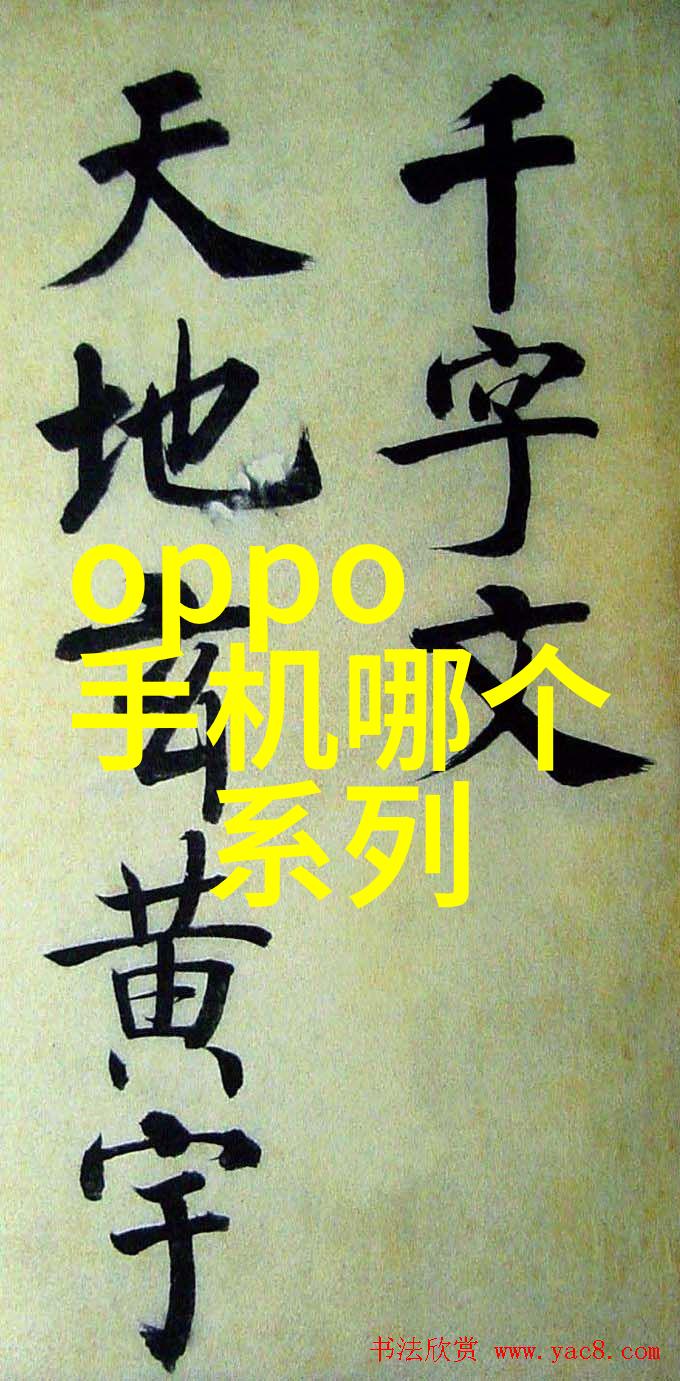 千字文
天地黄宇
oppo
手机哪个
系列
书法欣赏 www.yac8.com